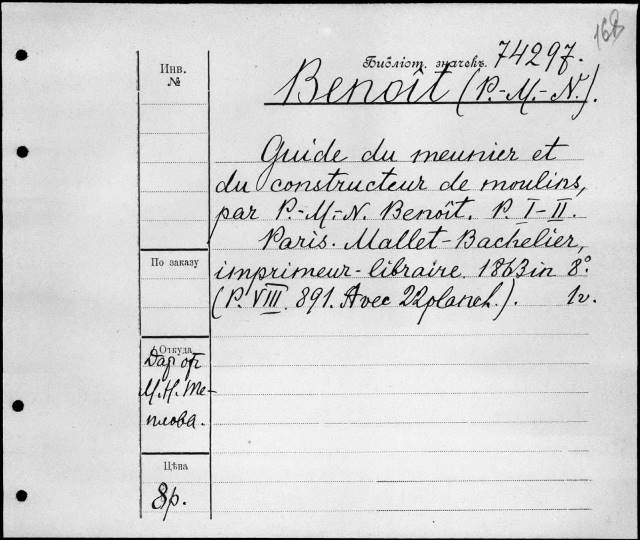 168
Библіот. значекъ 74297.
Инв.
№
Benoît (P.-M.-N.).
Guide du meunier et
du constructeur de moulins,
par P.-M-N. Benoît. P. I-II.
Paris. Mallet-Bachelier,
По заказу
imprimeur-libraire. 1863 in 8°.
(P. VIII. 891. Avec 22 planch.). 1v.
Откуда
Дар от
М.Н. Те-
плова.
Цѣна
8р.